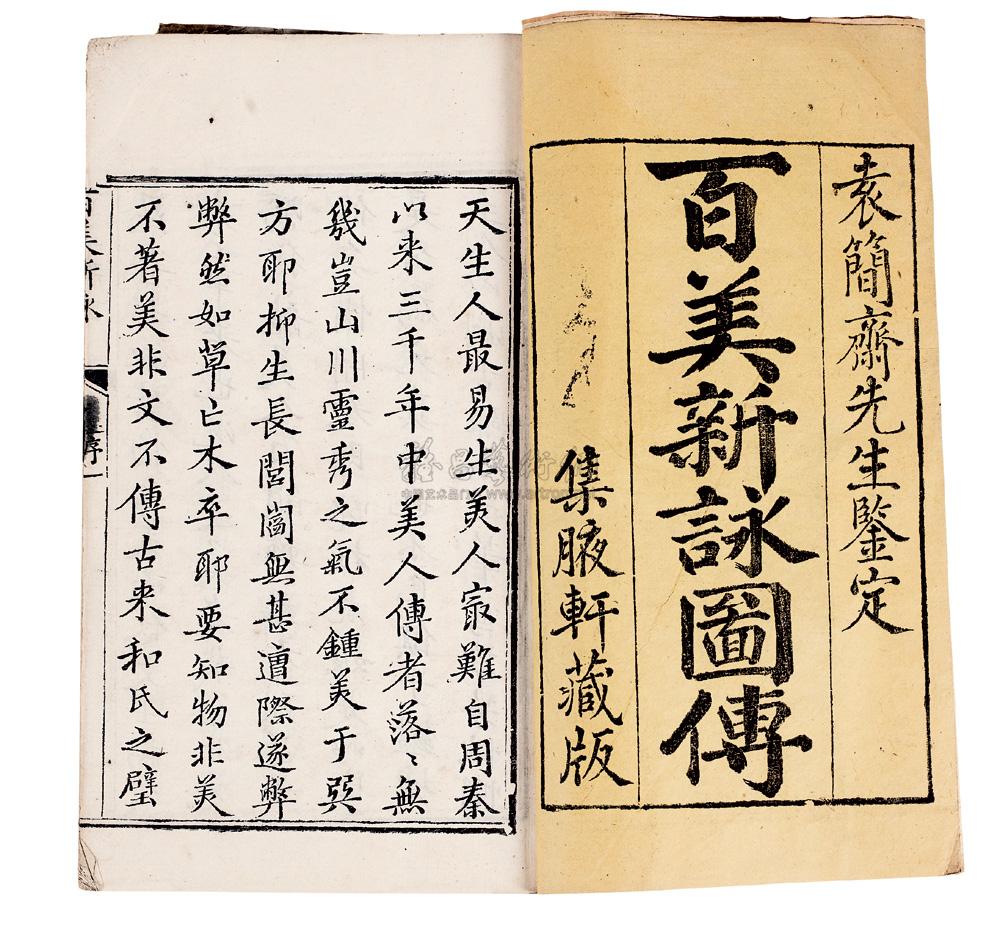 袁簡齋先生鑒定
百美新詠圖傳
集腋軒藏版
天生人最易生美人㝡難自周秦
以来三千年中美人傳者落〻無
幾豈山川靈秀之氣不鍾美于巽
方耶抑生長閭閻無甚遭際遂弊
弊然如草亡木卒耶要知物非美
不著美非文不傳古来和氏之璧
百美新詠
序一